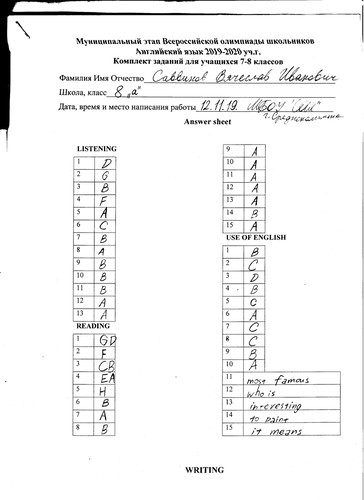 Муниципальный этап Всероссийской олимпиады школьников
Английский язык 2019-2020 уч.г.
Комплект заданий для учащихся 7-8 классов
Фамилия Имя Отчество Саввинов Вячеслав Иванович
Школа, класс 8 „а"
Дата, время и место написания работы 12.11.19. МБОУ
г. Среднеколымск
Answer sheet
LISTENING
1 D
2 G
3 B
4 F
5 A
6 C
7 B
8 A
9 B
10 B
11 B
12 A
13 A
READING
1 GD
2 F
3 CB
4 EA
5 H
6 B
7 A
8 B
9 A
10 A
11 A
12 A
13 A
14 B
15 A
USE OF ENGLISH
1 B
2 C
3 D
4 B
5 C
6 A
7 C
8 C
9 B
10 A
11 most famous
12 who is
13 interesting
14 to paint
15 it means
WRITING